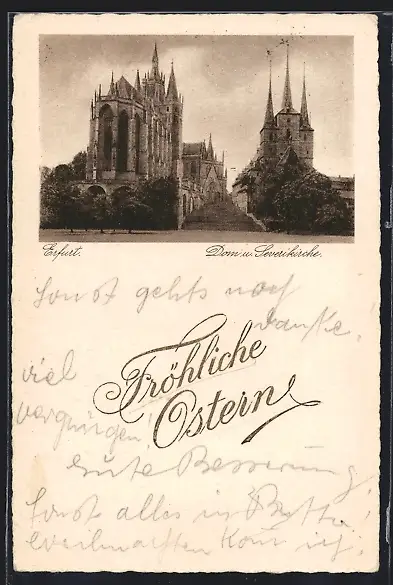 Erfurt. Dom u. Severikirche.
Sonst gehts noch
danke.
Fröhliche
Ostern
viel
vergnügen!
Gute Besserung!
Sonst alles in Butter!
kann ich!